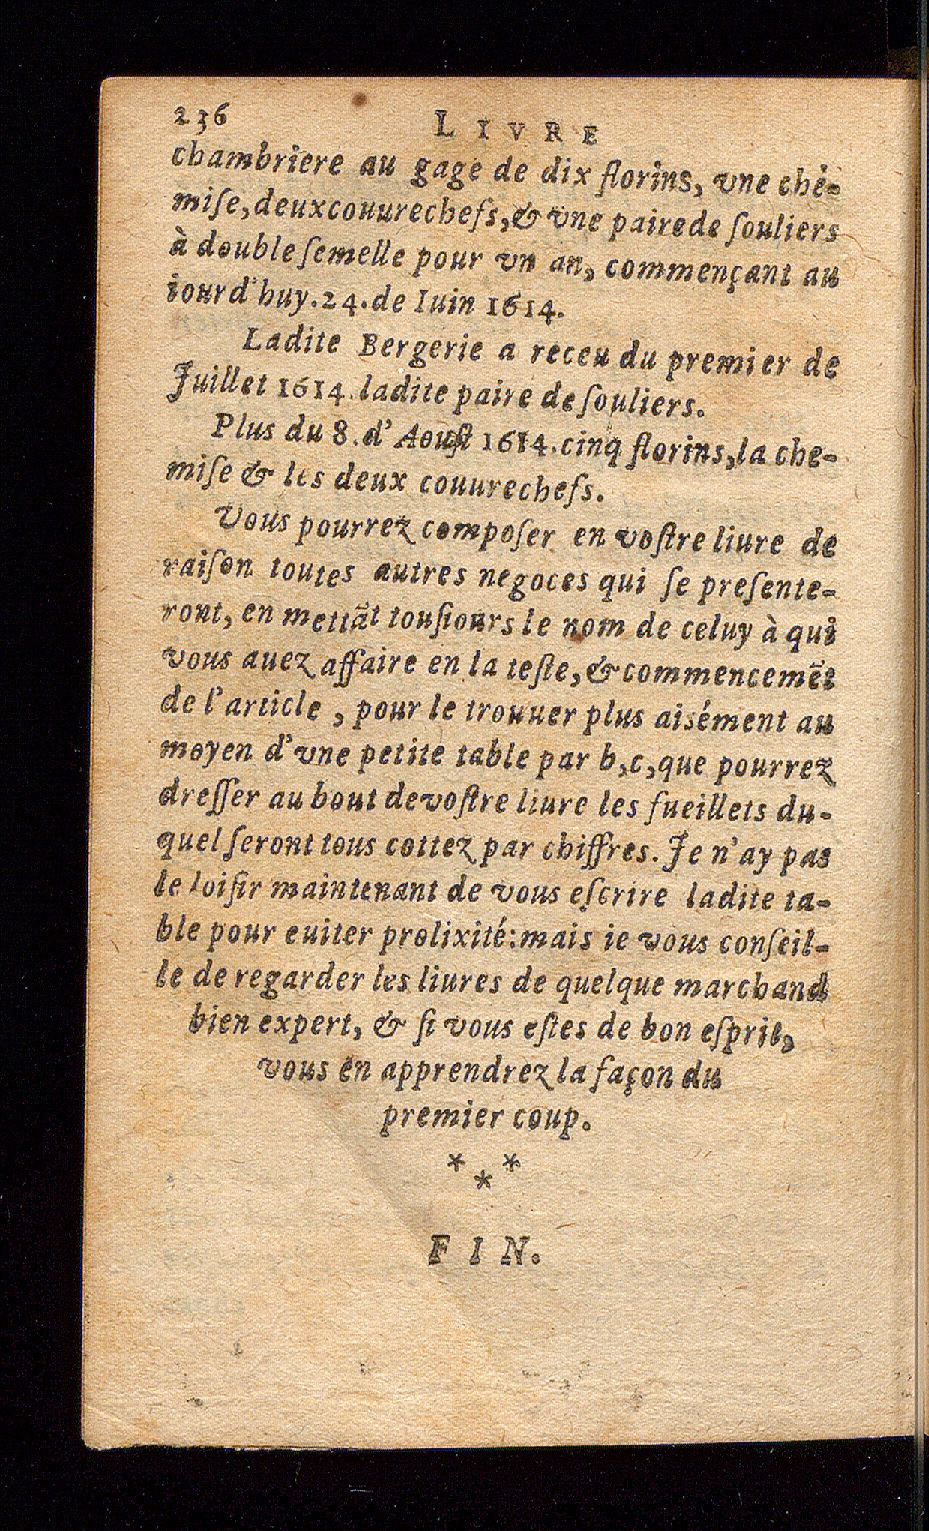 236
LIVRE
chambriere au gage de dix florins, vne che-
miſe, deux couurechefs, & vne paire de ſouliers
à double ſemelle pour vn an, commençant au
iourd'huy. 24. de Iuin 1614.
Ladite Bergerie a receu du premier de
Juillet 1614. ladite paire de ſouliers.
Plus du 8. d'Aouſt 1614. cinq florins, la che-
miſe & les deux couurechefs.
Vous pourrez compoſer en voſtre liure de
raiſon toutes autres negoces qui ſe preſente-
ront, en mettāt touſiours le nom de celuy à qui
vous auez affaire en la teſte, & commencemēt
de l'article, pour le trouuer plus aisément au
moyen d'vne petite table par b, c, que pourrez
dreſſer au bout de voſtre liure les fueillets du-
quel ſeront tous cottez par chiffres. Je n'ay pas
le loiſir maintenant de vous eſcrire ladite ta-
ble pour euiter prolixité: mais ie vous conſeil-
le de regarder les liures de quelque marchand
bien expert, & ſi vous eſtes de bon eſprit,
vous en apprendrez la façon du
premier coup.
* * *
FIN.